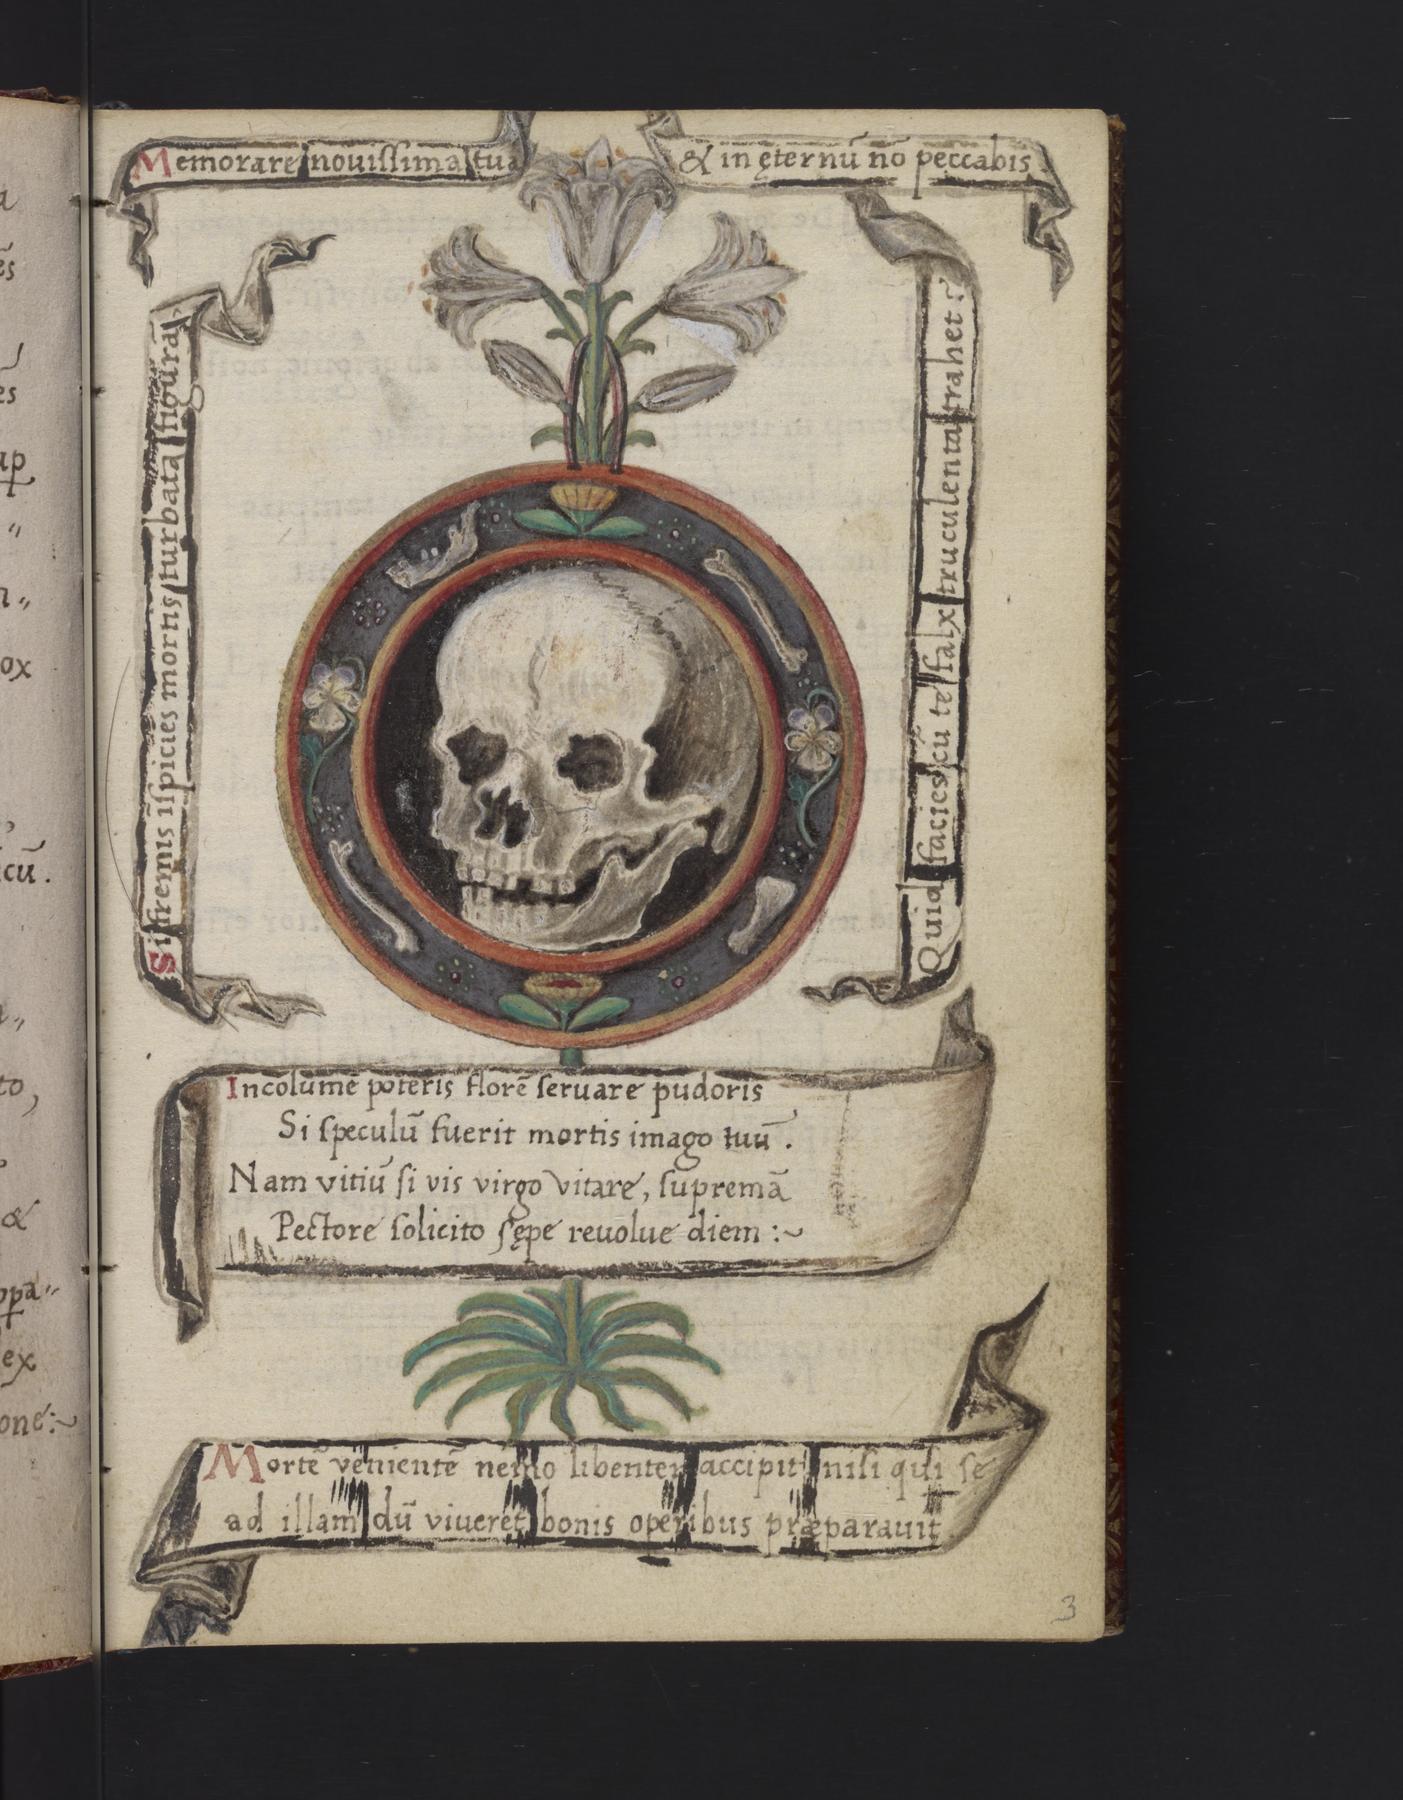 Memorare nouissima tua
& in ęternū nō peccabis
Si fremis īspicies mortis turbata figura,
Quid facies cū te falx truculenta trahet?
Incolumē poteris florē seruare pudoris
Si speculū fuerit mortis imago tuū.
Nam vitiū si vis virgo vitare, supremā
Pectore solicito sępe reuolue diem :~
Mortē venientē nemo libenter accipit nisi qui se
ad illam dū viueret bonis operibus præparauit
3